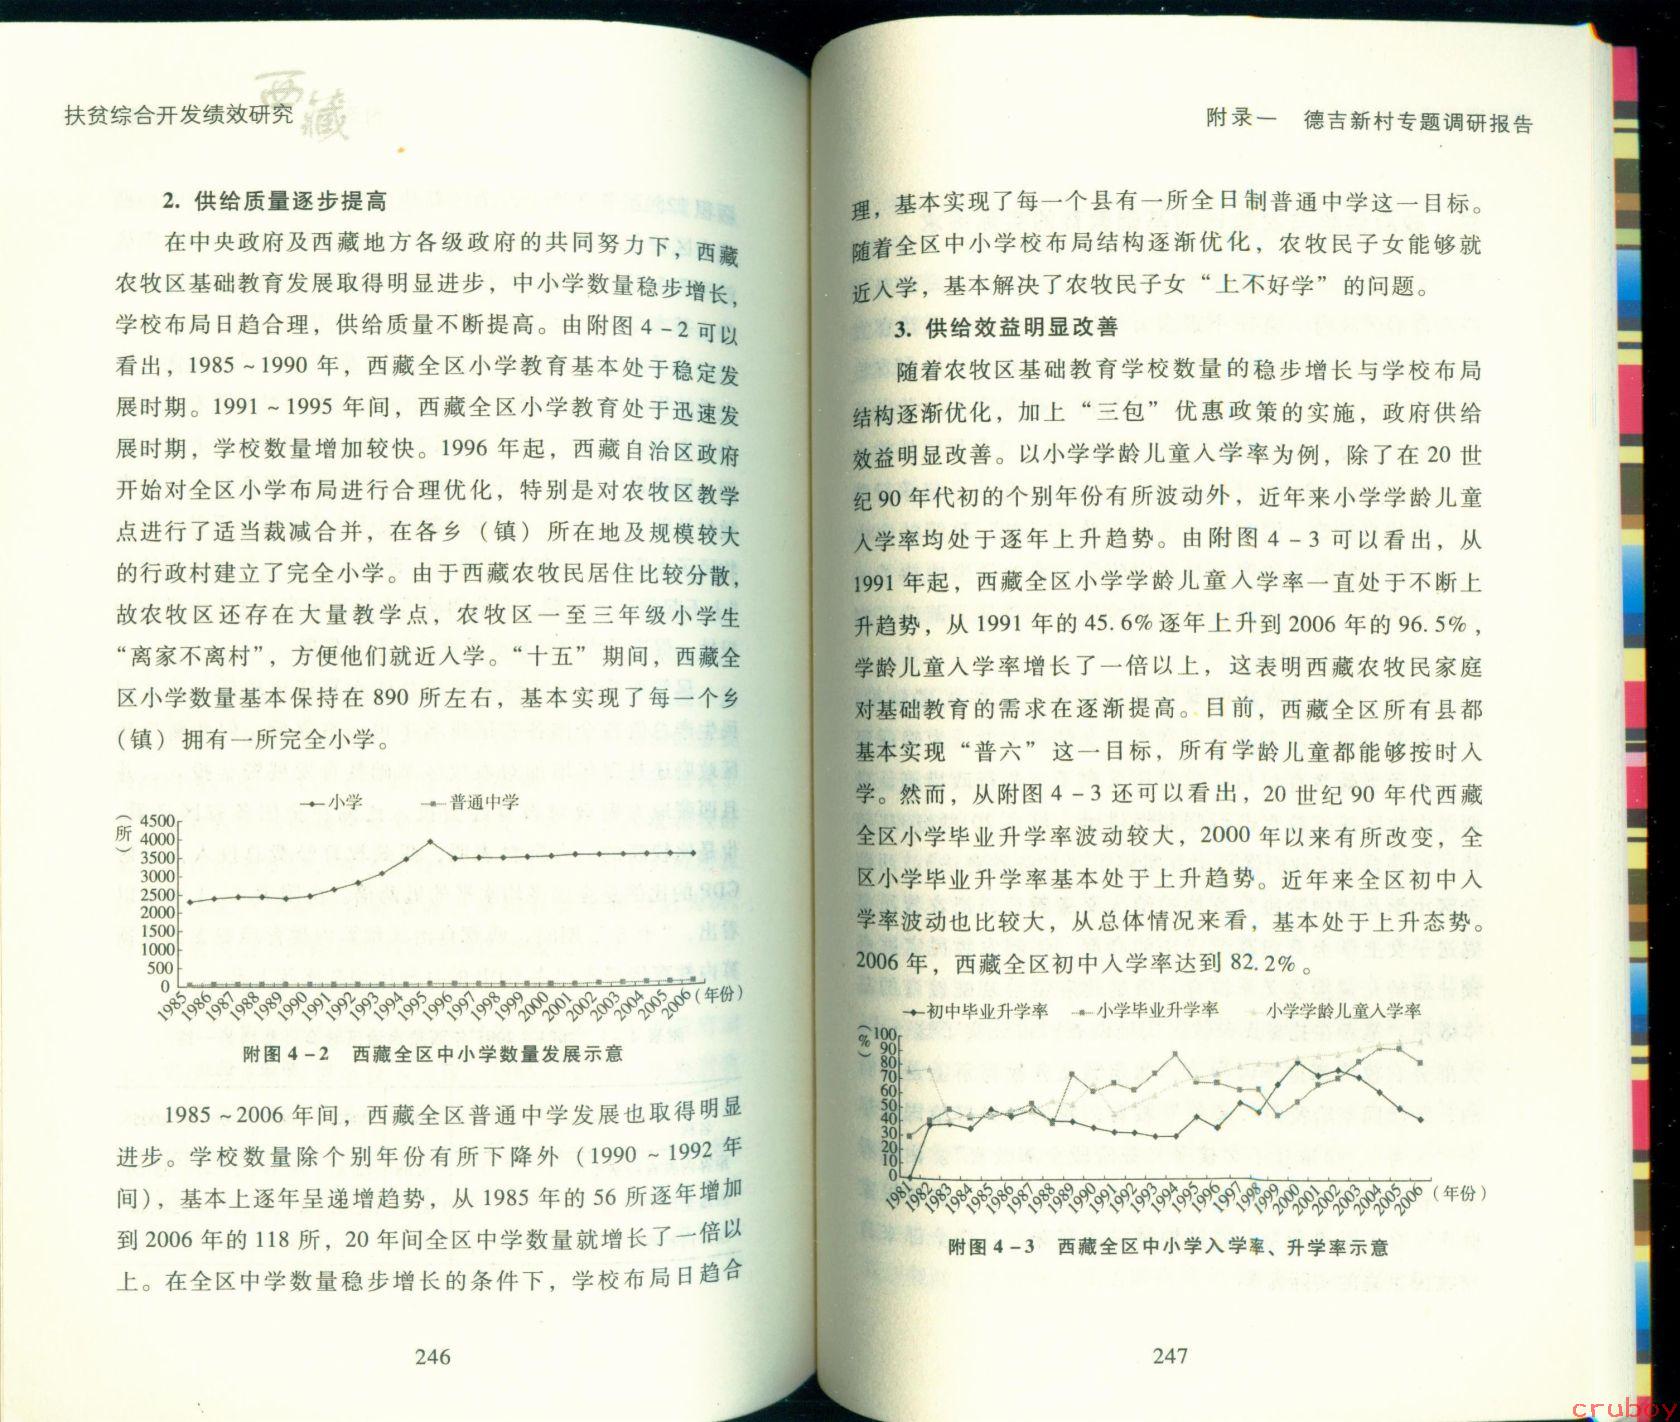 扶贫综合开发绩效研究
西藏
2. 供给质量逐步提高
在中央政府及西藏地方各级政府的共同努力下，西藏
农牧区基础教育发展取得明显进步，中小学数量稳步增长，
学校布局日趋合理，供给质量不断提高。由附图 4－2 可以
看出，1985～1990 年，西藏全区小学教育基本处于稳定发
展时期。1991～1995 年间，西藏全区小学教育处于迅速发
展时期，学校数量增加较快。1996 年起，西藏自治区政府
开始对全区小学布局进行合理优化，特别是对农牧区教学
点进行了适当裁减合并，在各乡（镇）所在地及规模较大
的行政村建立了完全小学。由于西藏农牧民居住比较分散，
故农牧区还存在大量教学点，农牧区一至三年级小学生
“离家不离村”，方便他们就近入学。“十五”期间，西藏全
区小学数量基本保持在 890 所左右，基本实现了每一个乡
（镇）拥有一所完全小学。
小学 普通中学
（所）
4500
4000
3500
3000
2500
2000
1500
1000
500
0
1985 1986 1987 1988 1989 1990 1991 1992 1993 1994 1995 1996 1997 1998 1999 2000 2001 2002 2003 2004 2005 2006 (年份)
附图 4－2 西藏全区中小学数量发展示意
1985～2006 年间，西藏全区普通中学发展也取得明显
进步。学校数量除个别年份有所下降外（1990～1992 年
间），基本上逐年呈递增趋势，从 1985 年的 56 所逐年增加
到 2006 年的 118 所，20 年间全区中学数量就增长了一倍以
上。在全区中学数量稳步增长的条件下，学校布局日趋合
246
附录一 德吉新村专题调研报告
理，基本实现了每一个县有一所全日制普通中学这一目标。
随着全区中小学校布局结构逐渐优化，农牧民子女能够就
近入学，基本解决了农牧民子女“上不好学”的问题。
3. 供给效益明显改善
随着农牧区基础教育学校数量的稳步增长与学校布局
结构逐渐优化，加上“三包”优惠政策的实施，政府供给
效益明显改善。以小学学龄儿童入学率为例，除了在 20 世
纪 90 年代初的个别年份有所波动外，近年来小学学龄儿童
入学率均处于逐年上升趋势。由附图 4－3 可以看出，从
1991 年起，西藏全区小学学龄儿童入学率一直处于不断上
升趋势，从 1991 年的 45.6% 逐年上升到 2006 年的 96.5%，
学龄儿童入学率增长了一倍以上，这表明西藏农牧民家庭
对基础教育的需求在逐渐提高。目前，西藏全区所有县都
基本实现“普六”这一目标，所有学龄儿童都能够按时入
学。然而，从附图 4－3 还可以看出，20 世纪 90 年代西藏
全区小学毕业升学率波动较大，2000 年以来有所改变，全
区小学毕业升学率基本处于上升趋势。近年来全区初中入
学率波动也比较大，从总体情况来看，基本处于上升态势。
2006 年，西藏全区初中入学率达到 82.2%。
初中毕业升学率 小学毕业升学率 小学学龄儿童入学率
（%）
100
90
80
70
60
50
40
30
20
10
0
1981 1982 1983 1984 1985 1986 1987 1988 1989 1990 1991 1992 1993 1994 1995 1996 1997 1998 1999 2000 2001 2002 2003 2004 2005 2006 (年份)
附图 4－3 西藏全区中小学入学率、升学率示意
247
cruboy